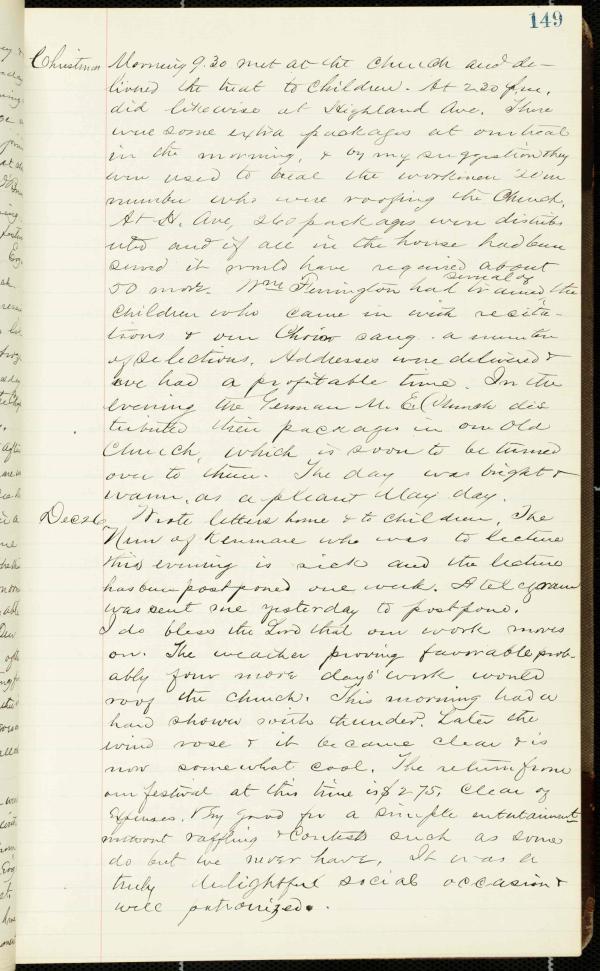 149
Christmas Morning 9.30 met at the church and de-
livered the treat to children. At 2.30 p.m.
did likewise at Highland Ave. There
were some extra packages at our treat
in the morning, & by my suggestion they
were used to treat the workmen 20 in
number who were roofing the Church.
At H. Ave, 260 packages were distrib
uted and if all in the house had been
served it would have required about
50 more. Wm Pennington had trained several of the
children who came in with recita-
tions & our Choir sang a number
of selections. Addresses were delivered &
we had a profitable time. In the
evening the German M. E. Church dis
tributed their packages in our old
Church, which is soon to be turned
over to them. The day was bright &
warm, as a pleasant May day.
Dec 26 Wrote letters home & to children. The
Nun of Kenmare who was to lecture
this evening is sick and the lecture
has been postponed one week. A telegram
was sent me yesterday to postpone.
I do bless the Lord that our work moves
on. The weather proving favorable prob-
ably four more days' work would
roof the church. This morning had a
hard shower with thunder. Later the
wind rose & it became clear & is
now somewhat cool. The return from
our festival at this time is $275. clear of
Expenses. Very good for a simple entertainment
without raffling & Contests such as some
do but we never have. It was a
truly delightful social occasion &
well patronized.